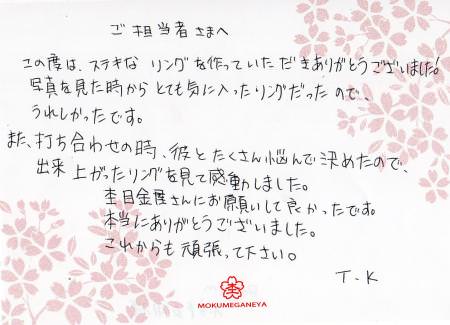 ご担当者さまへ
この度は、ステキな リングを作っていただきありがとうございました!
写真を見た時から とても気に入ったリングだったので、
うれしかったです。
また、打ち合わせの時、彼とたくさん悩んで決めたので、
出来上がったリングを見て感動しました。
杢目金屋さんにお願いして良かったです。
本当にありがとうございました。
これからも頑張って下さい。
T.K
杢
MOKUMEGANEYA